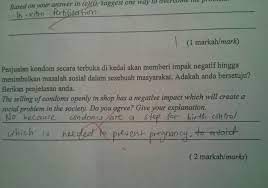 Based on your answer in (c)(i), suggest one way to overcome the problem.
In-vitro fertilisation
1 (1 markah/mark)
Penjualan kondom secara terbuka di kedai akan memberi impak negatif hingga
menimbulkan masalah sosial dalam sesebuah masyarakat. Adakah anda bersetuju?
Berikan penjelasan anda.
The selling of condoms openly in shop has a negative impact which will create a
social problem in the society. Do you agree? Give your explanation.
No because condoms are a step for birth control
which is needed to prevent pregnancy, to avoid
(2 markah/marks)